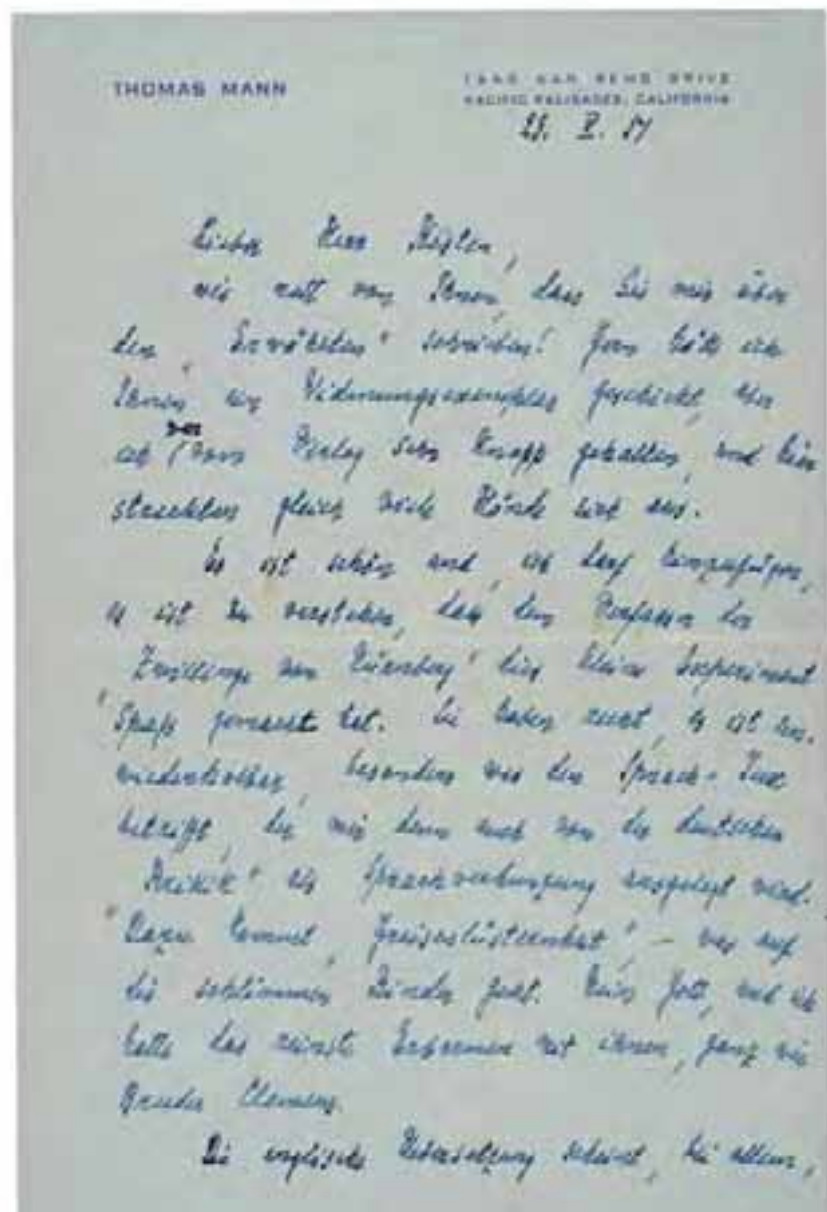 THOMAS MANN
1550 SAN REMO DRIVE
PACIFIC PALISADES, CALIFORNIA
23. V. 51
Lieber Herr Kesten,
wie nett von Ihnen, dass Sie mir über
den „Erwählten" schrieben! Gern hätte ich
Ihnen ein Widmungsexemplar geschickt, aber
ich war vom Verlag sehr knapp gehalten, und hier
streckten gleich viele Hände sich aus.
Es ist schön und, ich darf hinzufügen,
es ist zu verstehen, dass dem Verfasser der
„Zwillinge von Nürnberg" dies kleine Experiment
Spaß gemacht hat. Sie haben recht, es ist un-
wiederholbar, besonders was den Sprach-Jux
betrifft, der mir denn auch von der deutschen
„Kritik" als Sprachverhunzung ausgelegt wird.
Dazu kommt „Greisenlüsternheit", – was auf
die schlimmen Kinder geht. Mein Gott, und ich
hatte das reinste Erbarmen mit ihnen, ganz wie
Bruder Clemens.
Die englische Übersetzung scheint, bei allem,